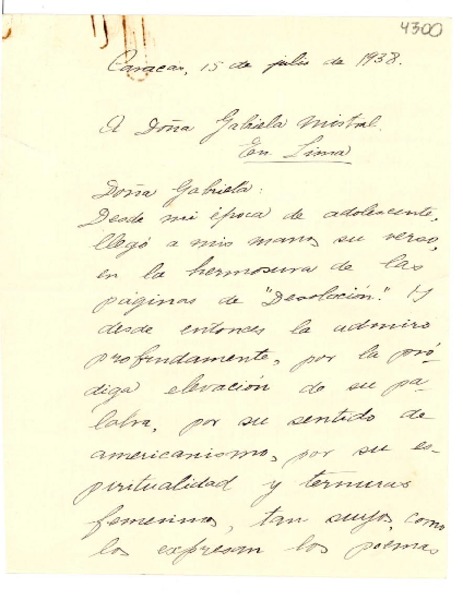 4300
Caracas, 15 de julio de 1938.
A Doña Gabriela Mistral.
En Lima
Doña Gabriela:
Desde mi época de adolescente,
llegó a mis manos su verso,
en la hermosura de las
páginas de "Desolación". Y
desde entonces la admiro
profundamente, por la pró-
diga elevación de su pa-
labra, por su sentido de
americanismo, por su es-
piritualidad y ternuras
femeninas, tan suyos, como
los expresan los poemas